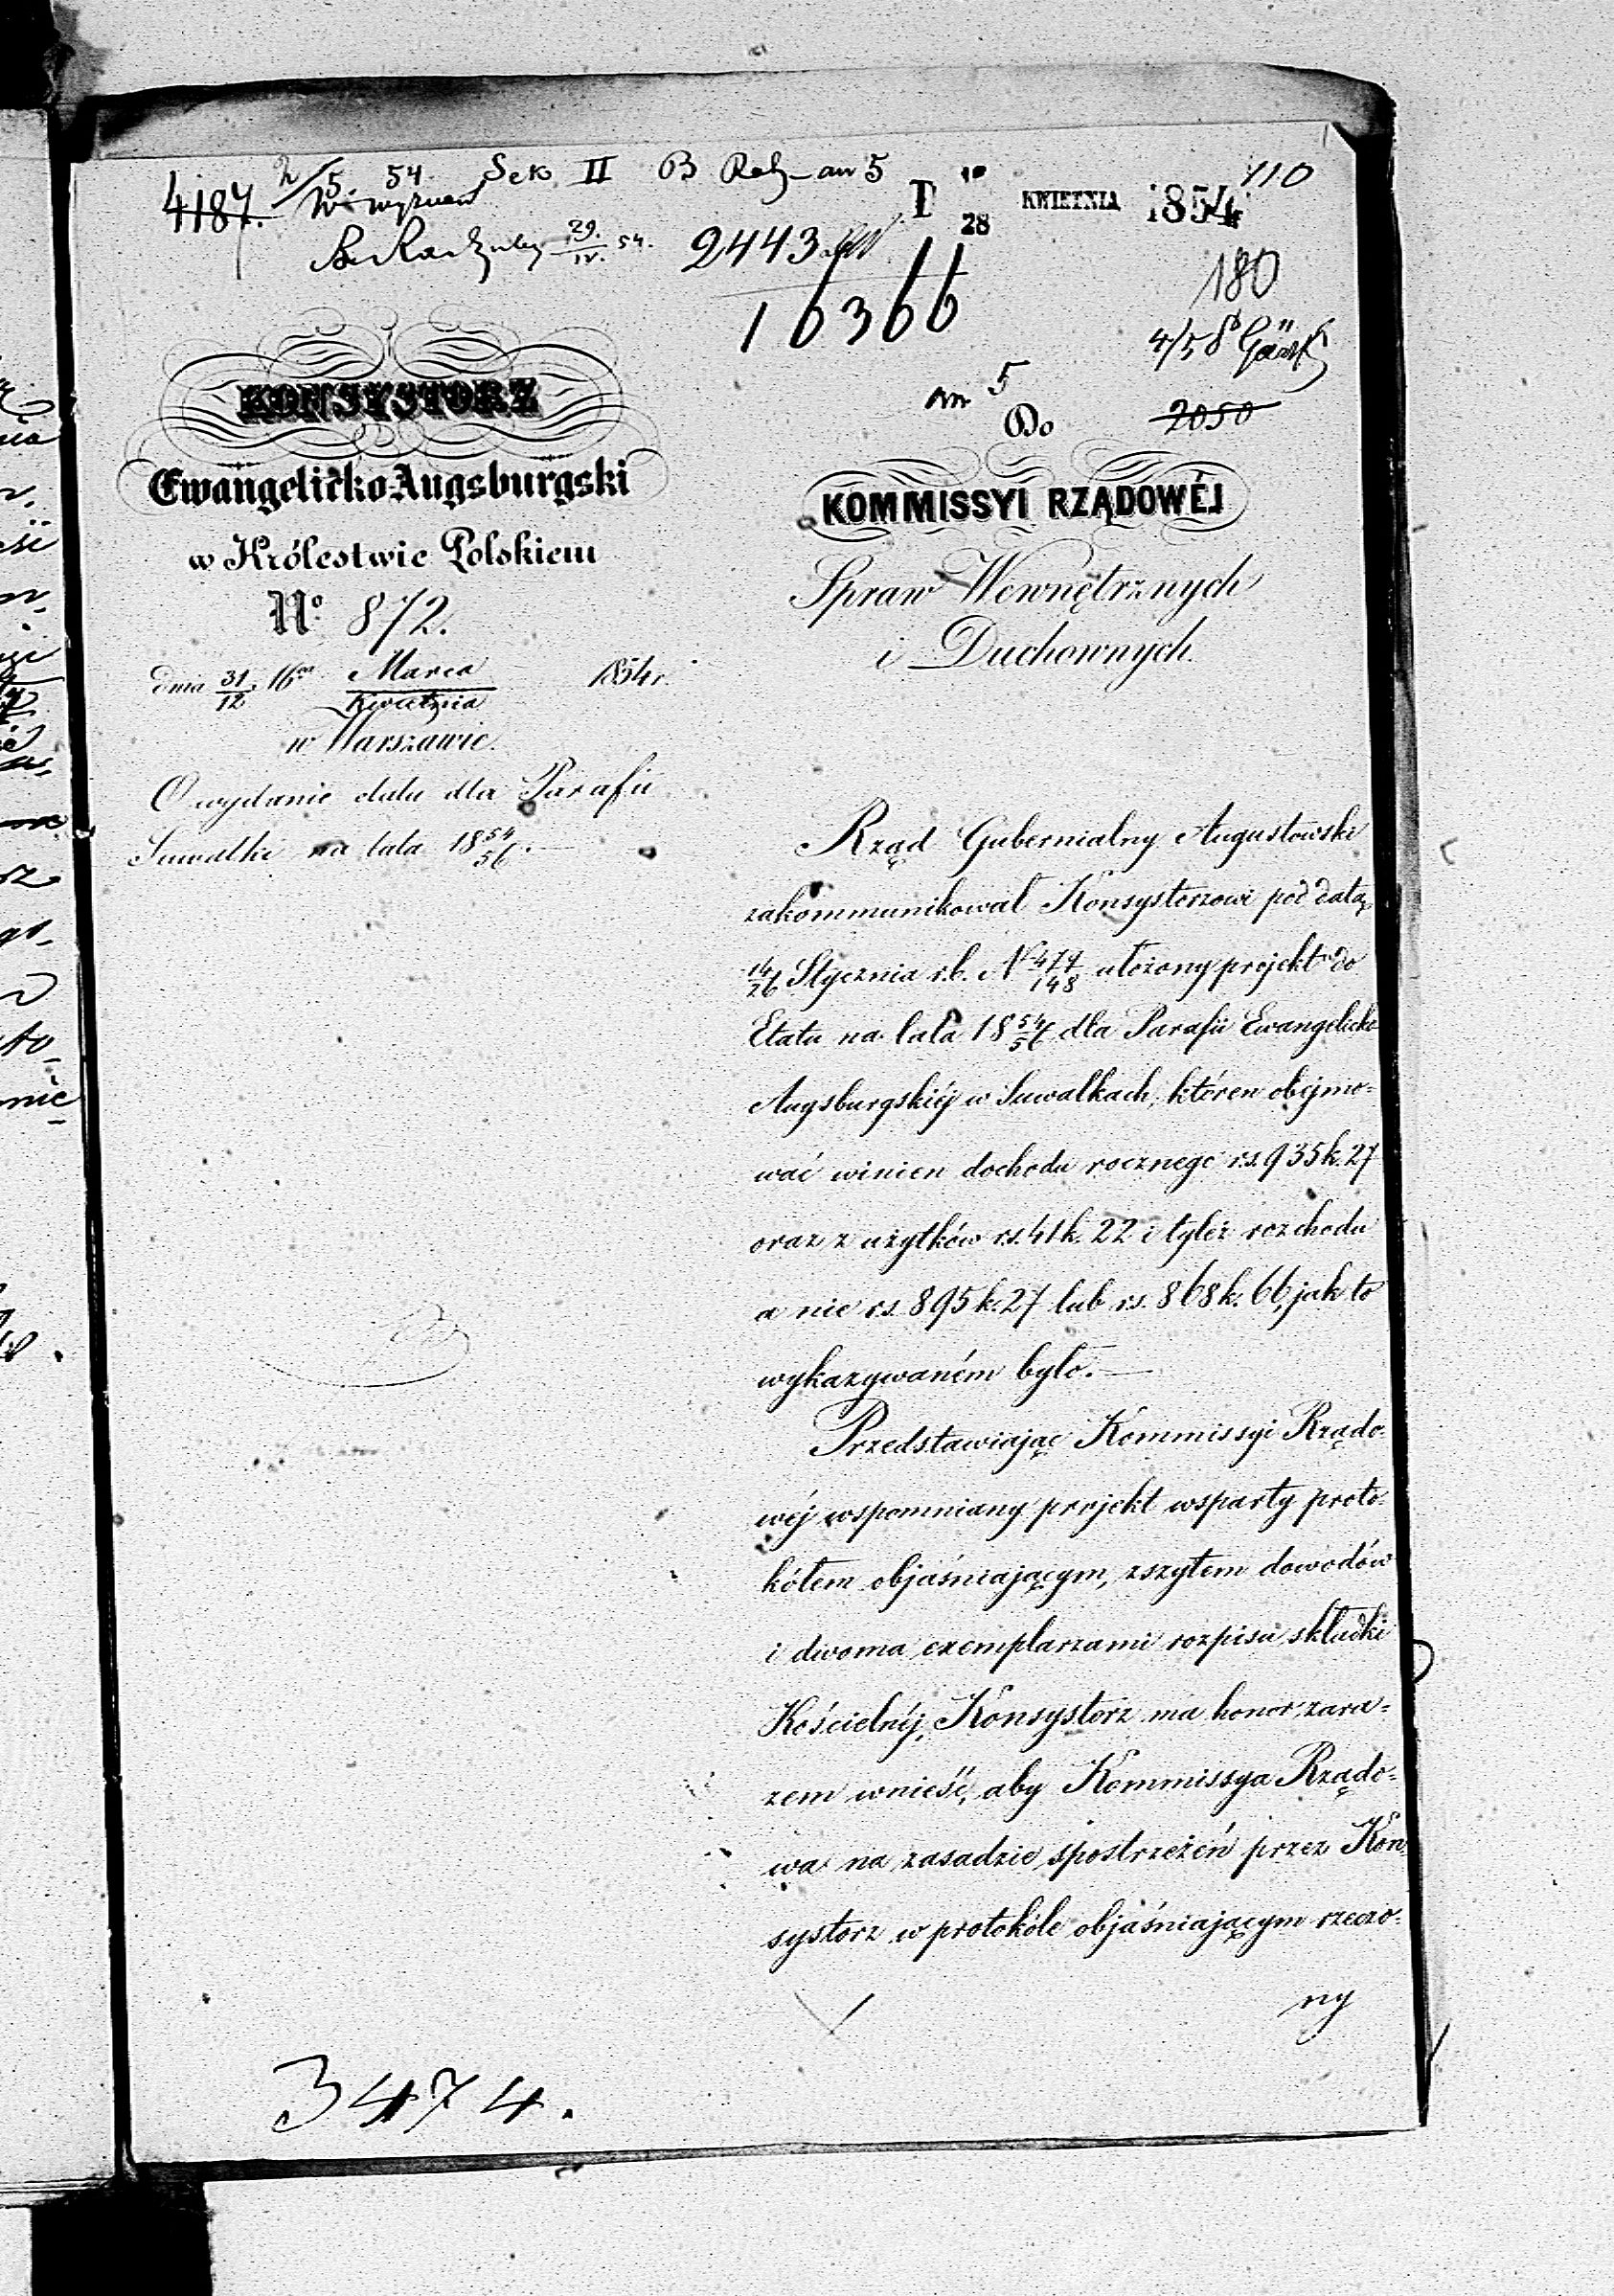 4187. 2/5. 54. Sek II B an 5
29/IV. 54. 2443
T 10/28 KWIETNIA 1854
110
16366
180
4/5 8
an 5
2050
KONSYSTORZ
Ewangelicko Augsburgski
w Królestwie Polskiem
No. 872.
dnia 31/12 Marca/Kwietnia 1854 r.
w Warszawie.
O wydanie etatu dla Parafii
Suwałki na lata 18 54/56. —
Do
KOMMISSYI RZĄDOWÉJ
Spraw Wewnętrznych
i Duchownych.
Rząd Gubernialny Augustowski
zakommunikował Konsystorzowi pod datą
14/26 Stycznia r.b. N 477/148 ułożony projekt do
Etatu na lata 18 54/56 dla Parafii Ewangelicko
Augsburgskiéj w Suwałkach, któren obejmo=
wać winien dochodu rocznego rs. 935 k. 27
oraz z użytków rs. 41 k. 22 i tyleż rozchodu
a nie rs. 895 k. 27 lub rs. 868 k. 66, jak to
wykazywaném było. —
Przedstawiając Kommissyi Rządo-
wéj wspomniany projekt wsparty proto-
kółem objaśniającym, zszytem dowodów
i dwoma exemplarzami rozpisu składki
Kościelnéj, Konsystorz ma honor zara=
zem wnieść, aby Kommissya Rządo=
wa na zasadzie spostrzeżeń przez Kon-
systorz w protokóle objaśniającym rzeczo=
ny
3474.